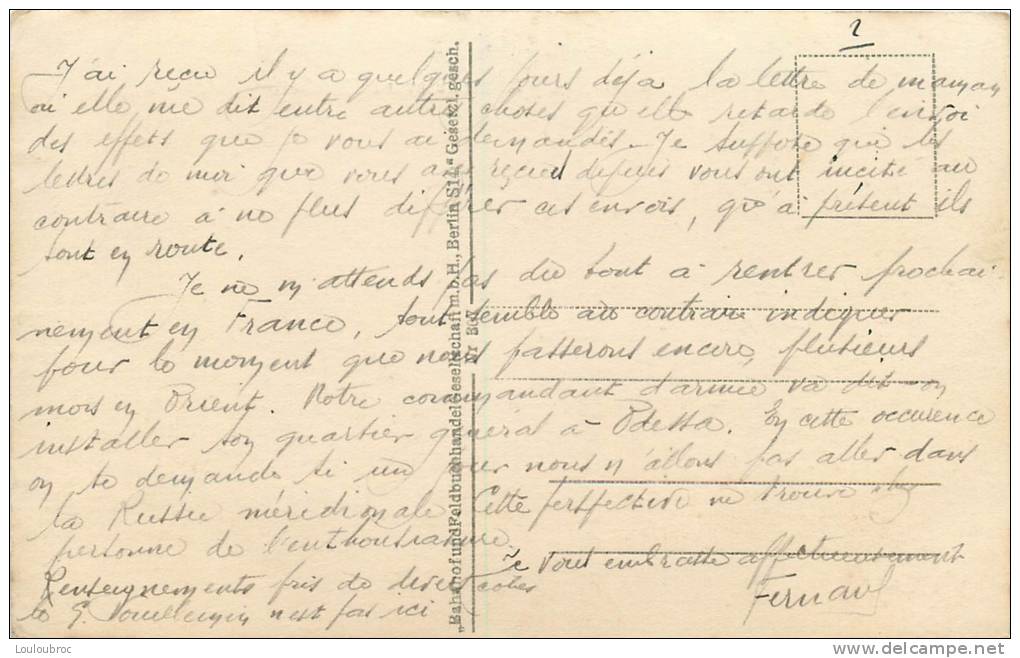 2
J'ai reçu il y a quelques jours déjà la lettre de maman
où elle me dit entre autres choses qu'elle retarde l'envoi
des effets que je vous ai demandés. Je suppose que les
lettres de moi que vous avez reçues depuis vous ont incité au
contraire à ne plus différer ces envois, qu'à présent ils
sont en route.
Je ne m'attends pas du tout à rentrer prochai-
nement en France, tout semble au contraire indiquer
pour le moment que nous passerons encore plusieurs
mois en Orient. Notre commandant d'armée va dit-on
installer son quartier général à Odessa. En cette occurence
on se demande si un jour nous n'allons pas aller dans
la Russie méridionale. Cette perspective ne trouve chez
personne de l'enthousiasme.
Je vous embrasse affectueusement
Fernand
Renseignements pris de divers côtés
le G. n'est pas ici
„Bahnhof und Feldbuchhandel Gesellschaft m. b. H., Berlin S14." Gesetzl. gesch.
Louloubroc
www.delcampe.net